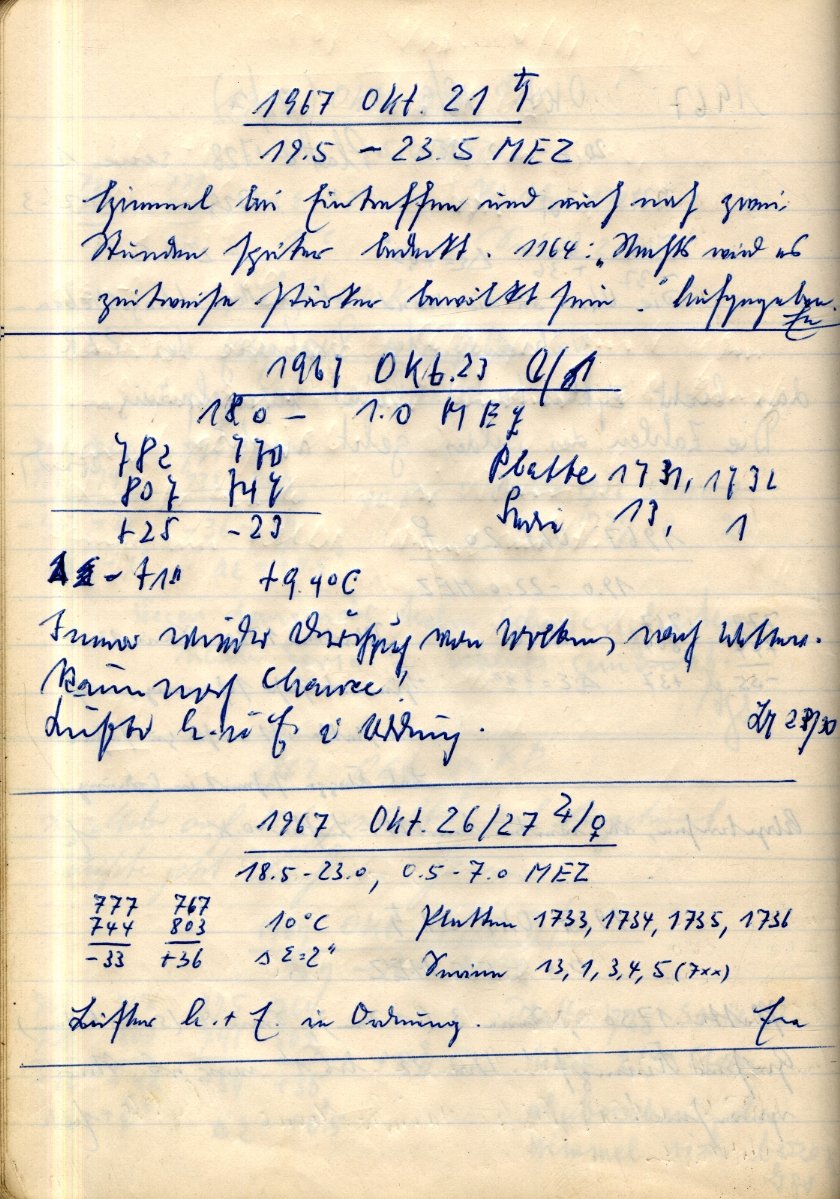 1967 Okt. 21 ♄
19.5 – 23.5 MEZ
Himmel bei Eintreffen und auch noch zwei
Stunden später bedeckt. 1164: „Nachts wird es
zeitweise stärker bewölkt sein." Aufgegeben.
1967 Okt. 23
18.0 – 1.0 MEZ
782 770 Platte 1731, 1732
807 747 Serie 13, 1
+25 -23
+1" +9.4°C
Immer wieder von Wolken, nach Wetter.
Kaum noch Chance!
Lüfter h. E. Ordnung.
1967 Okt. 26/27 ♃/♀
18.5-23.0, 0.5-7.0 MEZ
777 767
744 803 10°C Platten 1733, 1734, 1735, 1736
-33 +36 Δ Σ=2" Serien 13, 1, 3, 4, 5 (7xx)
Lüfter h. + E. in Ordnung.